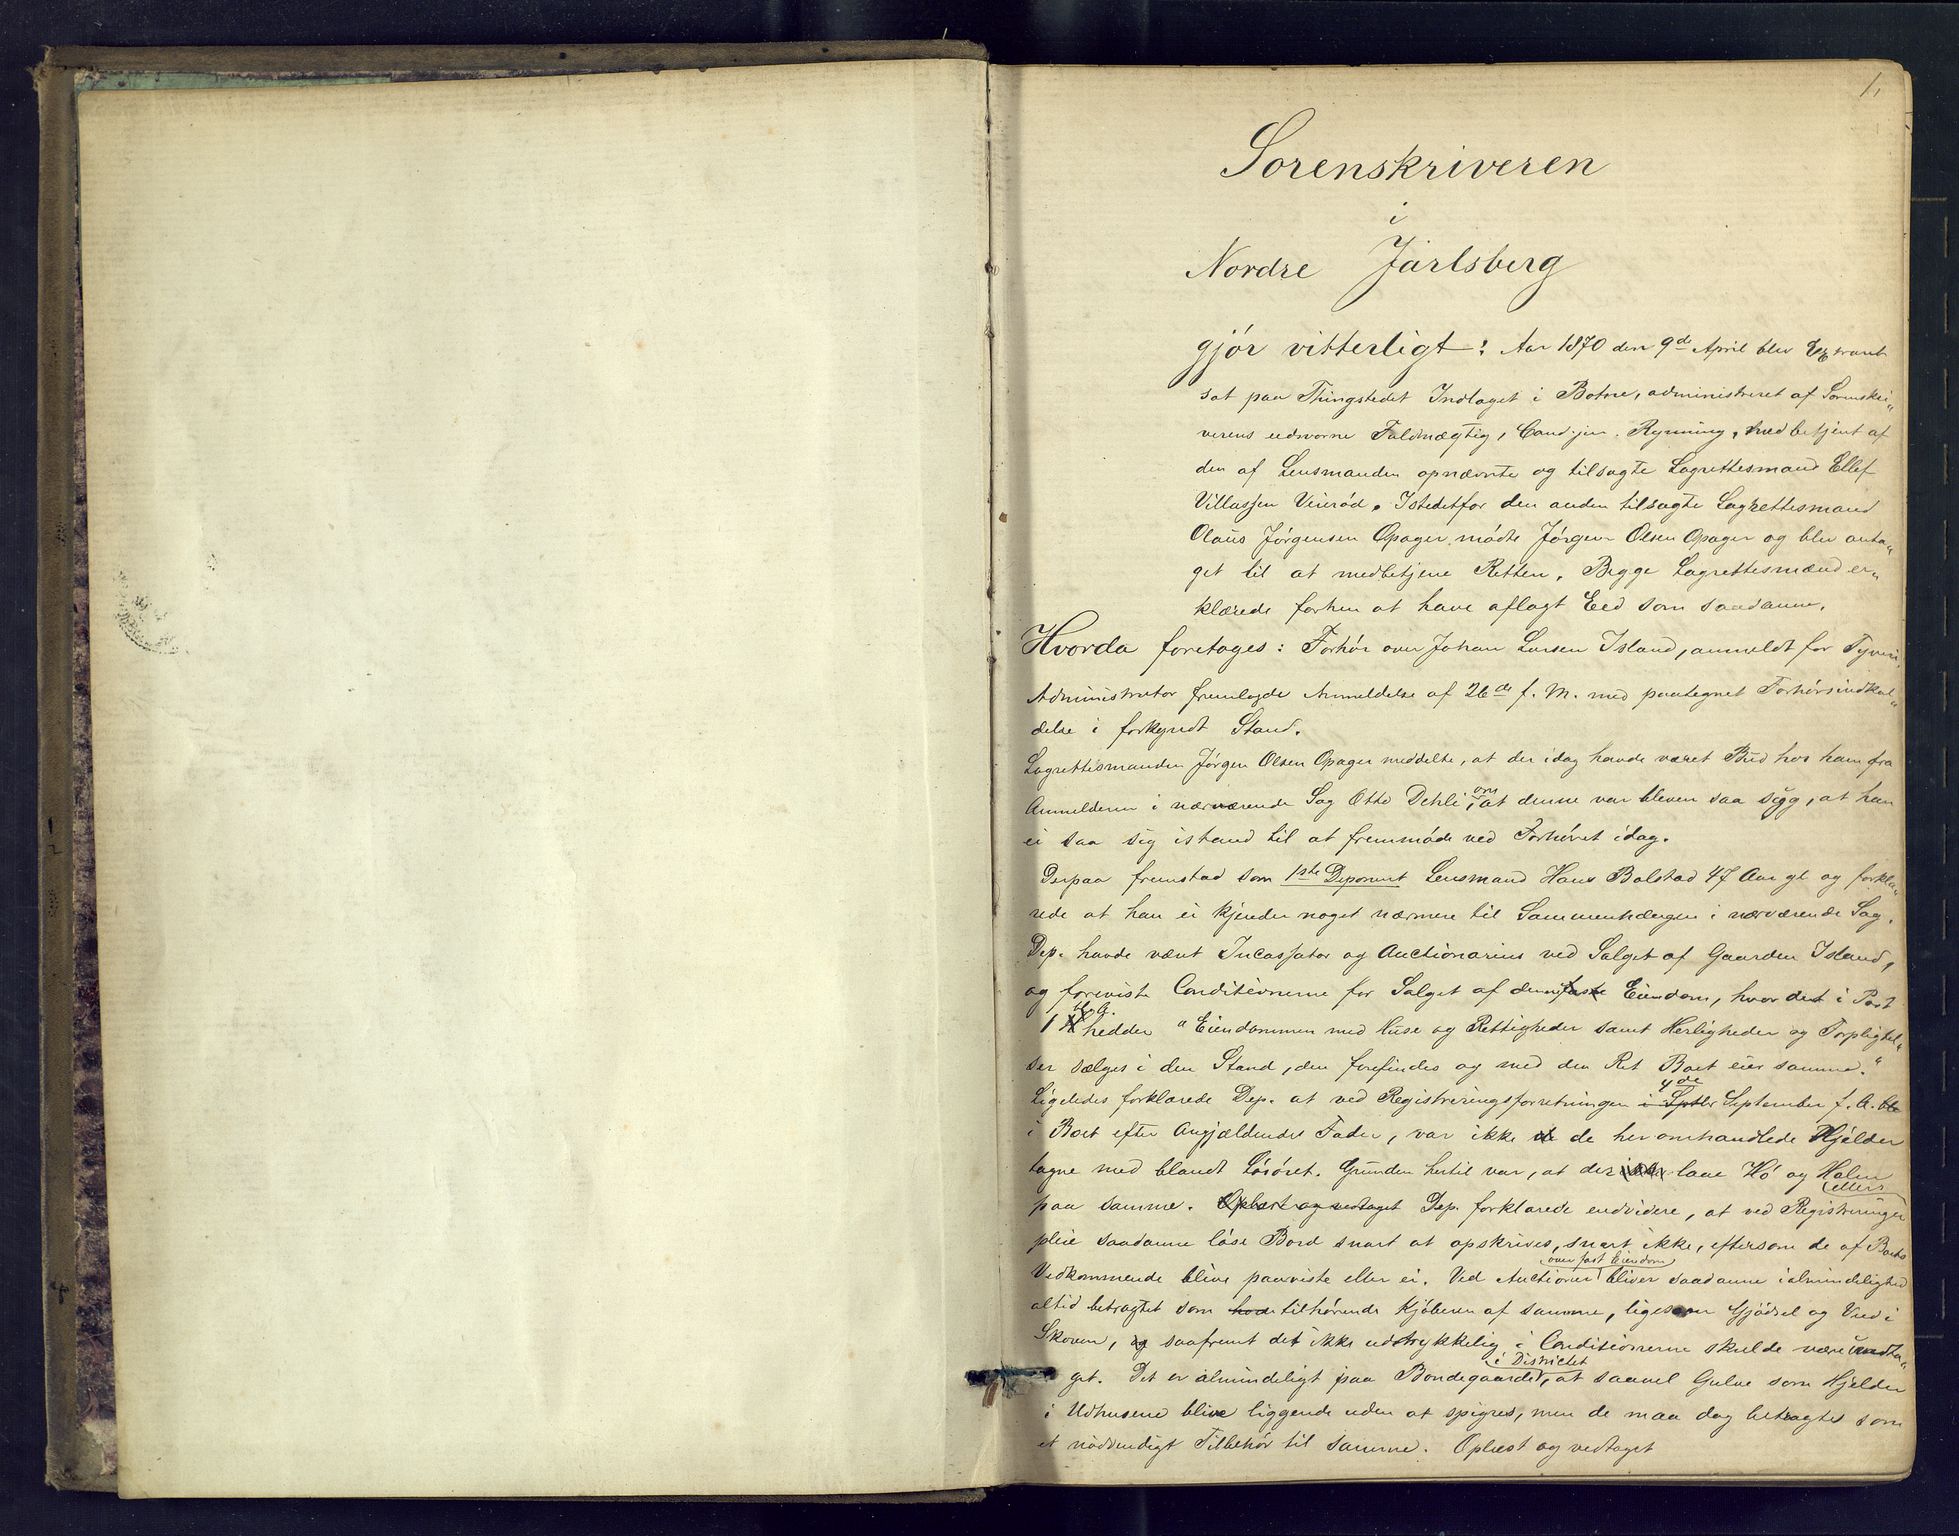 1.
Sorenskriveren
i
Nordre Jarlsberg
gjör vitterligt: Aar 1870 den 9de April blev Extraret
sat paa Thingstedet Indlaget i Botne, administreret af Sorenskri„
verens edsvorne Fuldmægtig, Cand. jur. Rynning, medbetjent af
den af Lensmanden opnævnte og tilsagte Lagrettesmand Ellef
Villassen Veierød. Istedetfor den anden tilsagte Lagrettesmand
Olaus Jørgensen Opager mødte Jørgen Olsen Opager og blev anta„
get til at medbetjene Retten. Begge Lagrettesmænd er„
klærede forhen at have aflagt Eed som saadanne.
Hvorda foretoges: Forhör over Johan Larsen Island, anmeldt for Tyveri.
Administrator fremlagde Anmeldelse af 26de f. M. med paategnet Forhörsindkal„
delse i forkyndt Stand.
Lagrettesmanden Jörgen Olsen Opager meddelte, at der idag havde været Bud hos ham fra
Anmelderen i nærværende Sag Otto Dehli om, at denne var bleven saa syg, at han
ei saa sig istand til at fremmöde ved Forhöret idag.
Derpaa fremstod som 1ste Deponent Lensmand Hans Bolstad 47 Aar gl og forkla„
rede at han ei kjender noget nærmere til Sammenhængen i nærværende Sag.
Dep. havde været Incassator og Auctionarius ved Salget af Gaarden Island,
og foreviste Conditionerne for Salget af denne faste Eiendom, hvor det i Post
1 hedder "Eiendommen med Huse og Rettigheder samt Herligheder og Forpligtel„
ser sælges i den Stand, den forefindes og med den Ret Boet eier samme."
Ligeledes forklarede Dep. at ved Registreringsforretningen i Septbr 4de September f. A.
i Boet efter Angjældendes Fader, var ikke de heromhandlede Hjelder
tagne med blandt Lösöret. Grunden hertil var, at der laae Hö og Halm
paa samme. Oplæst og vedtaget Dep. forklarede endvidere, at ved Registreringer ellers
pleie saadanne löse Bord snart at opskrives, snart ikke, eftersom de af Boets
Vedkommende blive paaviste eller ei. Ved Auctioner over fast Eiendom bliver saadanne ialmindelighed
altid betragtet som tilhörende Kjöberen af samme, ligesom Gjödsel og Ved i
Skoven, og saafremt det ikke udtrykkelig i Conditionerne skulde være undta„
get. Det er almindeligt paa Bondegaarde i Districtet, at saavel Gulve som Hjelder
i Udhusene blive liggende uden at spigres, men de maa dog betragtes som
et nödvendigt Tilbehör til samme. Oplæst og vedtaget